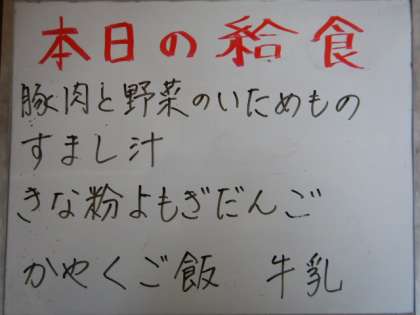 本日の給食
豚肉と野菜のいためもの
すまし汁
きな粉よもぎだんご
かやくご飯 牛乳